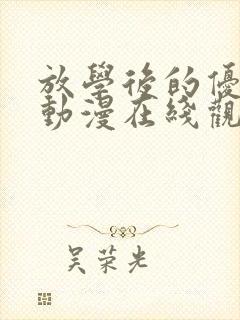 放學後的優
動漫在綫觀
吴荣光